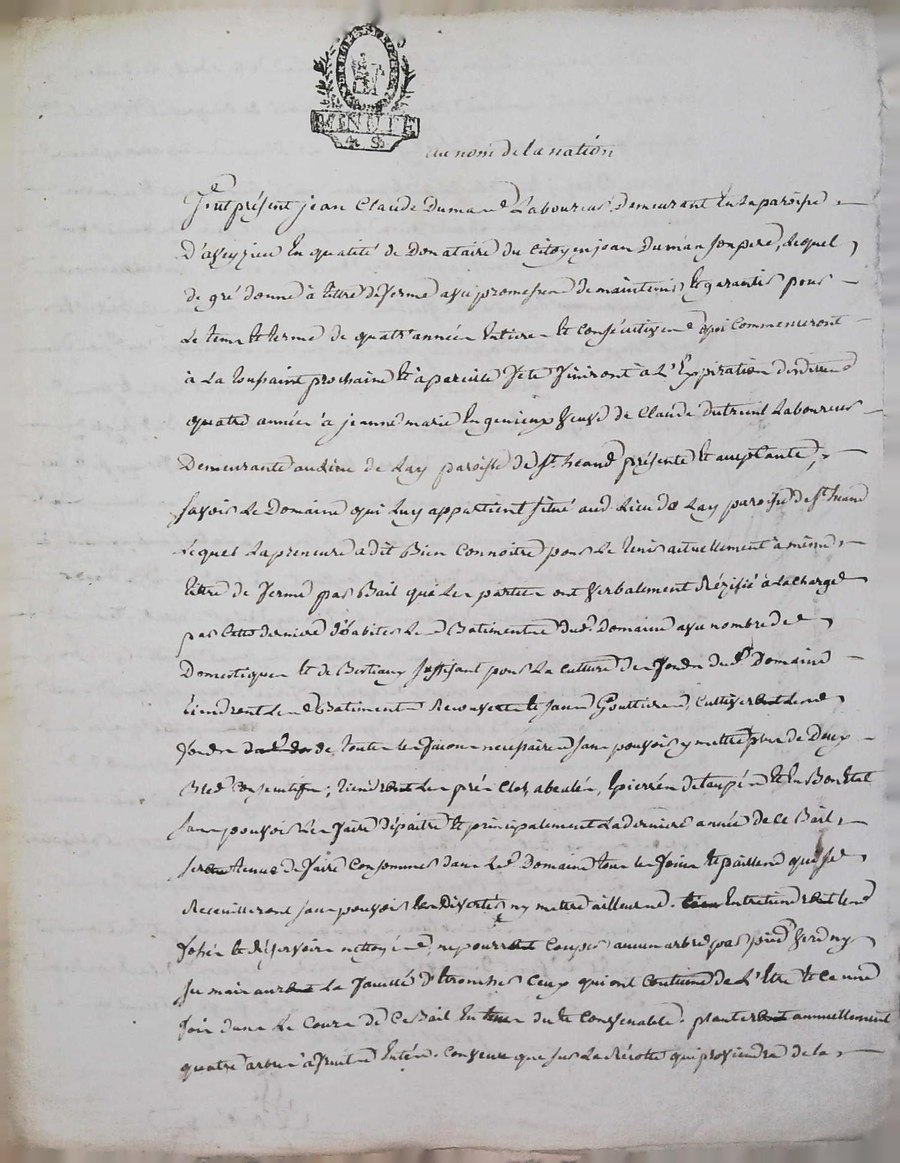 MINUTE
4 S
au nom de la nation
fut présent jean Claude Duma Laboureur Demeurant en la paroisse
D'aveyzieu En qualité de Donataire du Citoyen jean Dumas son pere, Lequel
de gré donne à titre de ferme avec promesse de maintenir et garantir pour
Le tems et terme de quatr' année Entieres et Consécutives qui Commenceront
à La toussaint prochaine et à pareille fete finiront à L'Expiration desdittes
quatre année à jeanne marie Veuve de Claude Laboureur
Demeurante audlieu de Lay paroisse de st. heand présente et acceptante,
savoir Le Domaine qui Luy appartient situé aud. Lieu de Lay paroisse de st. heand
Lequel La preneure a dit Bien Connoitre pour Le tenir actuellement à même
titre de ferme par Bail que Les parties ont verbalement Résilié à La charge
par Cette derniere d'habiter Les Batiments dud. Domaine avec nombre de
Domestiques et de Bestiaux suffisant pour La culture des fonds dud. Domaine
tiendront Les Batiments Recouverts et sans Gouttieres, Cultiver
fonds de toutes Les façons necessaires sans pouvoir y mettre plus de Deux
Bleds Consecutifs; Les prés Clos, abealés, Epierrés detaupés et En Bon Etat
sans pouvoir Les faire dépaitre et principalement La derniere année de ce Bail,
sera tenue de faire Consommer dans Led. Domaine tous Les foins et pailles qui se
Receuilleront sans pouvoir Les Divertir ny mettre ailleurs. Entretiendra Les
fossés et Réservoirs nettoyés, ne pourra Couper aucun arbre par pied verd ny
sec mais aura La faculté d'Etroncher Ceux qui ont Coutume de L'Etre et ce une
fois dans Le Cours de Ce Bail En tems du et Convenable. plantera annuellement
quatre arbres à fruits Entés. Convenu que sur La récolte qui proviendra de la